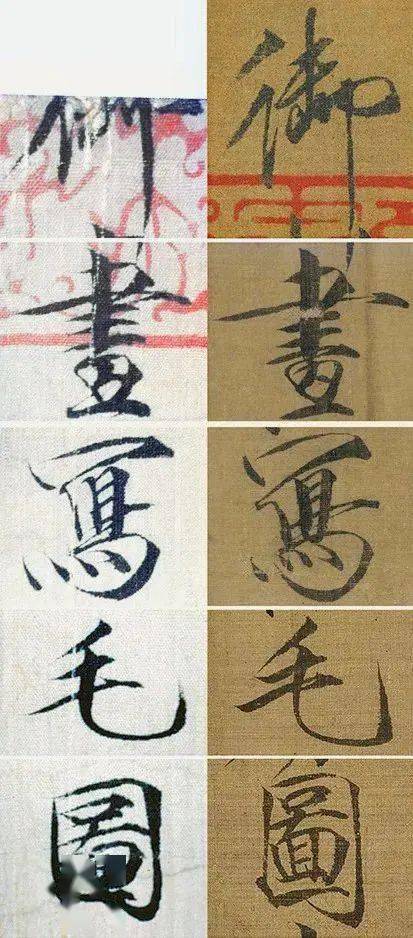 御 御
畫 畫
寫 寫
毛 毛
圖 圖